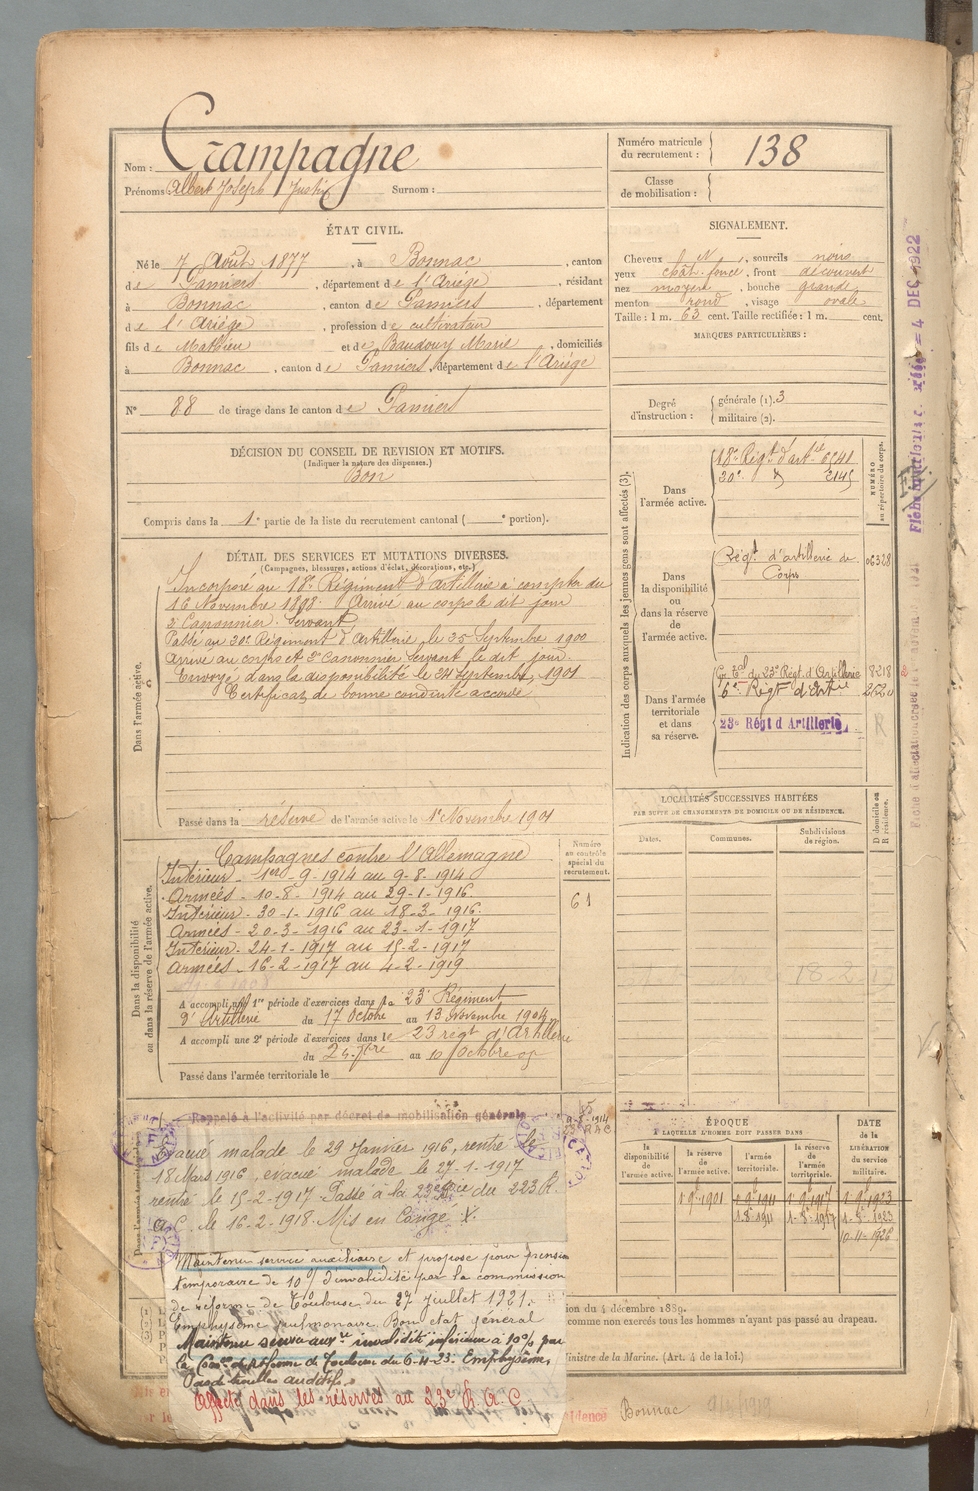 Nom : Crampagne
Prénoms : Albert Joseph Justin Surnom :
Numéro matricule du recrutement : 138
Classe de mobilisation :
ÉTAT CIVIL.
Né le 7 Août 1877, à Bonnac, canton
de Pamiers, département de l'Ariége, résidant
à Bonnac, canton de Pamiers, département
de l'Ariége, profession de cultivateur
fils de Mathieu et de Baudouy Marie, domiciliés
à Bonnac, canton de Pamiers, département de l'Ariége
N° 88 de tirage dans le canton de Pamiers
SIGNALEMENT.
Cheveux ch. N, sourcils noirs
yeux chât. foncé, front découvert
nez moyen, bouche grande
menton rond, visage ovale
Taille : 1 m. 63 cent. Taille rectifiée : 1 m. cent.
MARQUES PARTICULIÈRES :
Degré d'instruction : générale (1). 3
militaire (2).
DÉCISION DU CONSEIL DE REVISION ET MOTIFS.
(Indiquer la nature des dispenses.)
Bon
Compris dans la 1e partie de la liste du recrutement cantonal ( e portion).
DÉTAIL DES SERVICES ET MUTATIONS DIVERSES.
(Campagnes, blessures, actions d'éclat, décorations, etc.)
Dans l'armée active.
Incorporé au 18e Régiment d'artillerie à compter du
16 Novembre 1898. Arrivé au corps le dit jour
2e Canonnier Servant
Passé au 20e Régiment d'Artillerie le 25 Septembre 1900
Arrivé au corps et 2e Canonnier Servant le dit jour.
Envoyé dans la disponibilité le 24 Septembre 1901
Certificat de bonne conduite accordé
Passé dans la réserve de l'armée active le 1er Novembre 1901
Indication des corps auxquels les jeunes gens sont affectés (3).
NUMÉRO au répertoire du corps.
Dans l'armée active.
18e Régt d'artie 6541
20e d° 2145
Dans la disponibilité ou dans la réserve de l'armée active.
Régt d'artillerie de Corps 06328
Dans l'armée territoriale et dans sa réserve.
Gr. Tal du 23e Régt. d'Artillerie 8218
6e Régt d'Artie
23e Régt d'Artillerie
R
LOCALITÉS SUCCESSIVES HABITÉES
PAR SUITE DE CHANGEMENTS DE DOMICILE OU DE RÉSIDENCE.
D domicile ou R résidence.
Dates.
Communes.
Subdivisions de région.
Dans la disponibilité ou dans la réserve de l'armée active.
Numéro au contrôle spécial du recrutement.
61
Campagnes contre l'Allemagne
Intérieur - 1er - 9 - 1914 au 9-8-1914
Armées - 10-8-1914 au 29-1-1916.
Intérieur - 30-1-1916 au 18-3-1916.
Armées - 20-3-1916 au 23-1-1917
Intérieur - 24-1-1917 au 15-2-1917
Armées - 16-2-1917 au 4-2-1919
A accompli une 1re période d'exercices dans le 23e Régiment
d'Artillerie du 17 Octobre au 13 Novembre 1904
A accompli une 2e période d'exercices dans le 23 régt d'Artillerie
du 24 7bre au 10 Octobre 07
Passé dans l'armée territoriale le
Rappelé à l'activité par décret de mobilisation générale
Evacué malade le 29 Janvier 1916, rentré le
18 Mars 1916, évacué malade le 27-1-1917
rentré le 15-2-1917 Passé à la du 223 R.
A. C. le 16-2-1918. Mis en Congé
Maintenu service auxiliaire et proposé pour pension
temporaire de 10% d'invalidité par la commission
de réforme de Toulouse du 27 Juillet 1921.
Emphysème pulmonaire. Bon état général
Maintenu service auxre invalidité inférieure à 10% par
la Comon de réforme de Toulouse du 6-4-23. Emphysème,
Pas de troubles auditifs.
Affecté dans les réserves au 23e R. A. C
ÉPOQUE
À LAQUELLE L'HOMME DOIT PASSER DANS :
la disponibilité de l'armée active.
la réserve de l'armée active.
l'armée territoriale.
la réserve de l'armée territoriale.
DATE de la LIBÉRATION du service militaire.
1 9bre 1901 1 9bre 1911 1 9bre 1917 1 9bre 1923
1. 8. 1911 1. 8. 1917 1. 8. 1923
10-11-1926
ion du 4 décembre 1889.
comme non exercés tous les hommes n'ayant pas passé au drapeau.
Ministre de la Marine. (Art. 4 de la loi.)
Résidence Bonnac 9/3/1919
4 DEC 1922